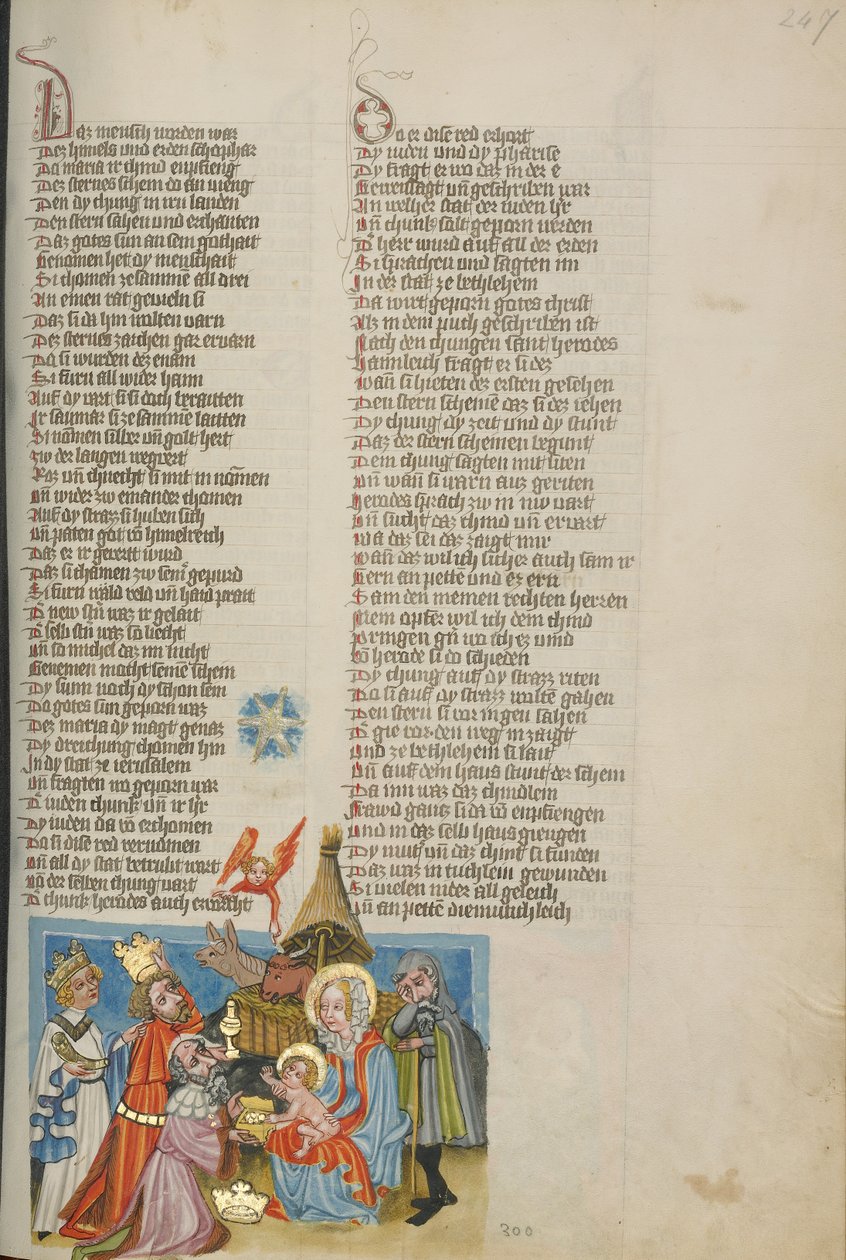 247
Daz mensch worden war
Dez himels und erden schephar
Do maria ir chind enpfieng
Dez sternes schein do an vieng
Den dy chung in irn landen
Den stern sahen und erchanten
Daz gotes sun an sein gothait
Genomen het dy menschait
Si chomen zesamme all drei
An einen rat gevieln si
Daz si da hin wolten varn
Dez sternes zaichen gar ervarn
Do si wurden dez enain
Si furn all wider haim
Auf dy vart si sich do berauten
Ir saumar si zesamme laitten
Si namen silber un golt hert
zw der langen wegvert
Roz un chnecht si mit in nomen
Un wider zw einander chomen
Auf dy strazz si huben sich
Un paten got vo himelreich
Daz er ir gevertt wurd
Daz si chamen zw seinr gepurd
Si furn wald veld un haid prait
D new stn waz ir gelait
D selb stn waz so liecht
Un so michel daz im nicht
Benemen mocht seine schein
Dy sunn noch dy schon sein
Do gotes sun geporn waz
Dez maria dy magt genaz
Dy drei chung chomen hin
In dy stat ze ierusalem
Un fragten wo geporn war
D iuden chunk un ir hr
Dy iuden da vo erchomen
Do si dise red vernomen
Un all dy stat betrubt wart
von der selben chung vart
D chunk herodes auch erchracht
Do er dise red erhort
Dy iuden und dy pharise
Dy fragt er wo daz in der e
Geweissagt un geschriben war
An welher stat der iuden hr
Un chunk solt geporn werden
D herr wurd auf all der erden
Si sprachen und sagten im
In der stat ze bethlehem
Da wirt geporn gotes christ
Als in dem puch geschriben ist
Nach den chungen sant herodes
haimleich fragt er si dez
wan si hieten dez ersten gesehen
Den stern scheine daz si dez iehen
Dy chung dy zeit und dy stunt
Daz der stern scheinen begunt
Dem chung sagten mit siten
Un wan si warn auz geriten
Herodes sprach zw in nw vart
Un sucht daz chind un ervart
Wa daz sei daz zaigt mir
Wan daz wil ich sicher auch sam ir
Gern an pette und ez ern
Sam den meinen rechten herren
Mein opfer wil ich dem chind
pringen gn wo ich ez vind
Vo herode si do schieden
Dy chung auf dy strazz riten
Do si auf dy strazz wolte gahen
Den stern si vor in gen sahen
D gie vor den weg in zaigt
Und ze bethlehem si lait
Un auf dem haus stunt der schein
Da inn waz daz chindlein
Frawd gantz si da vo enpfiengen
Und in daz selb haus giengen
Dy mut un daz chint si funden
Daz waz in tuchlein gewunden
Si vielen nider all geleich
Un an pette diemutichleich
300